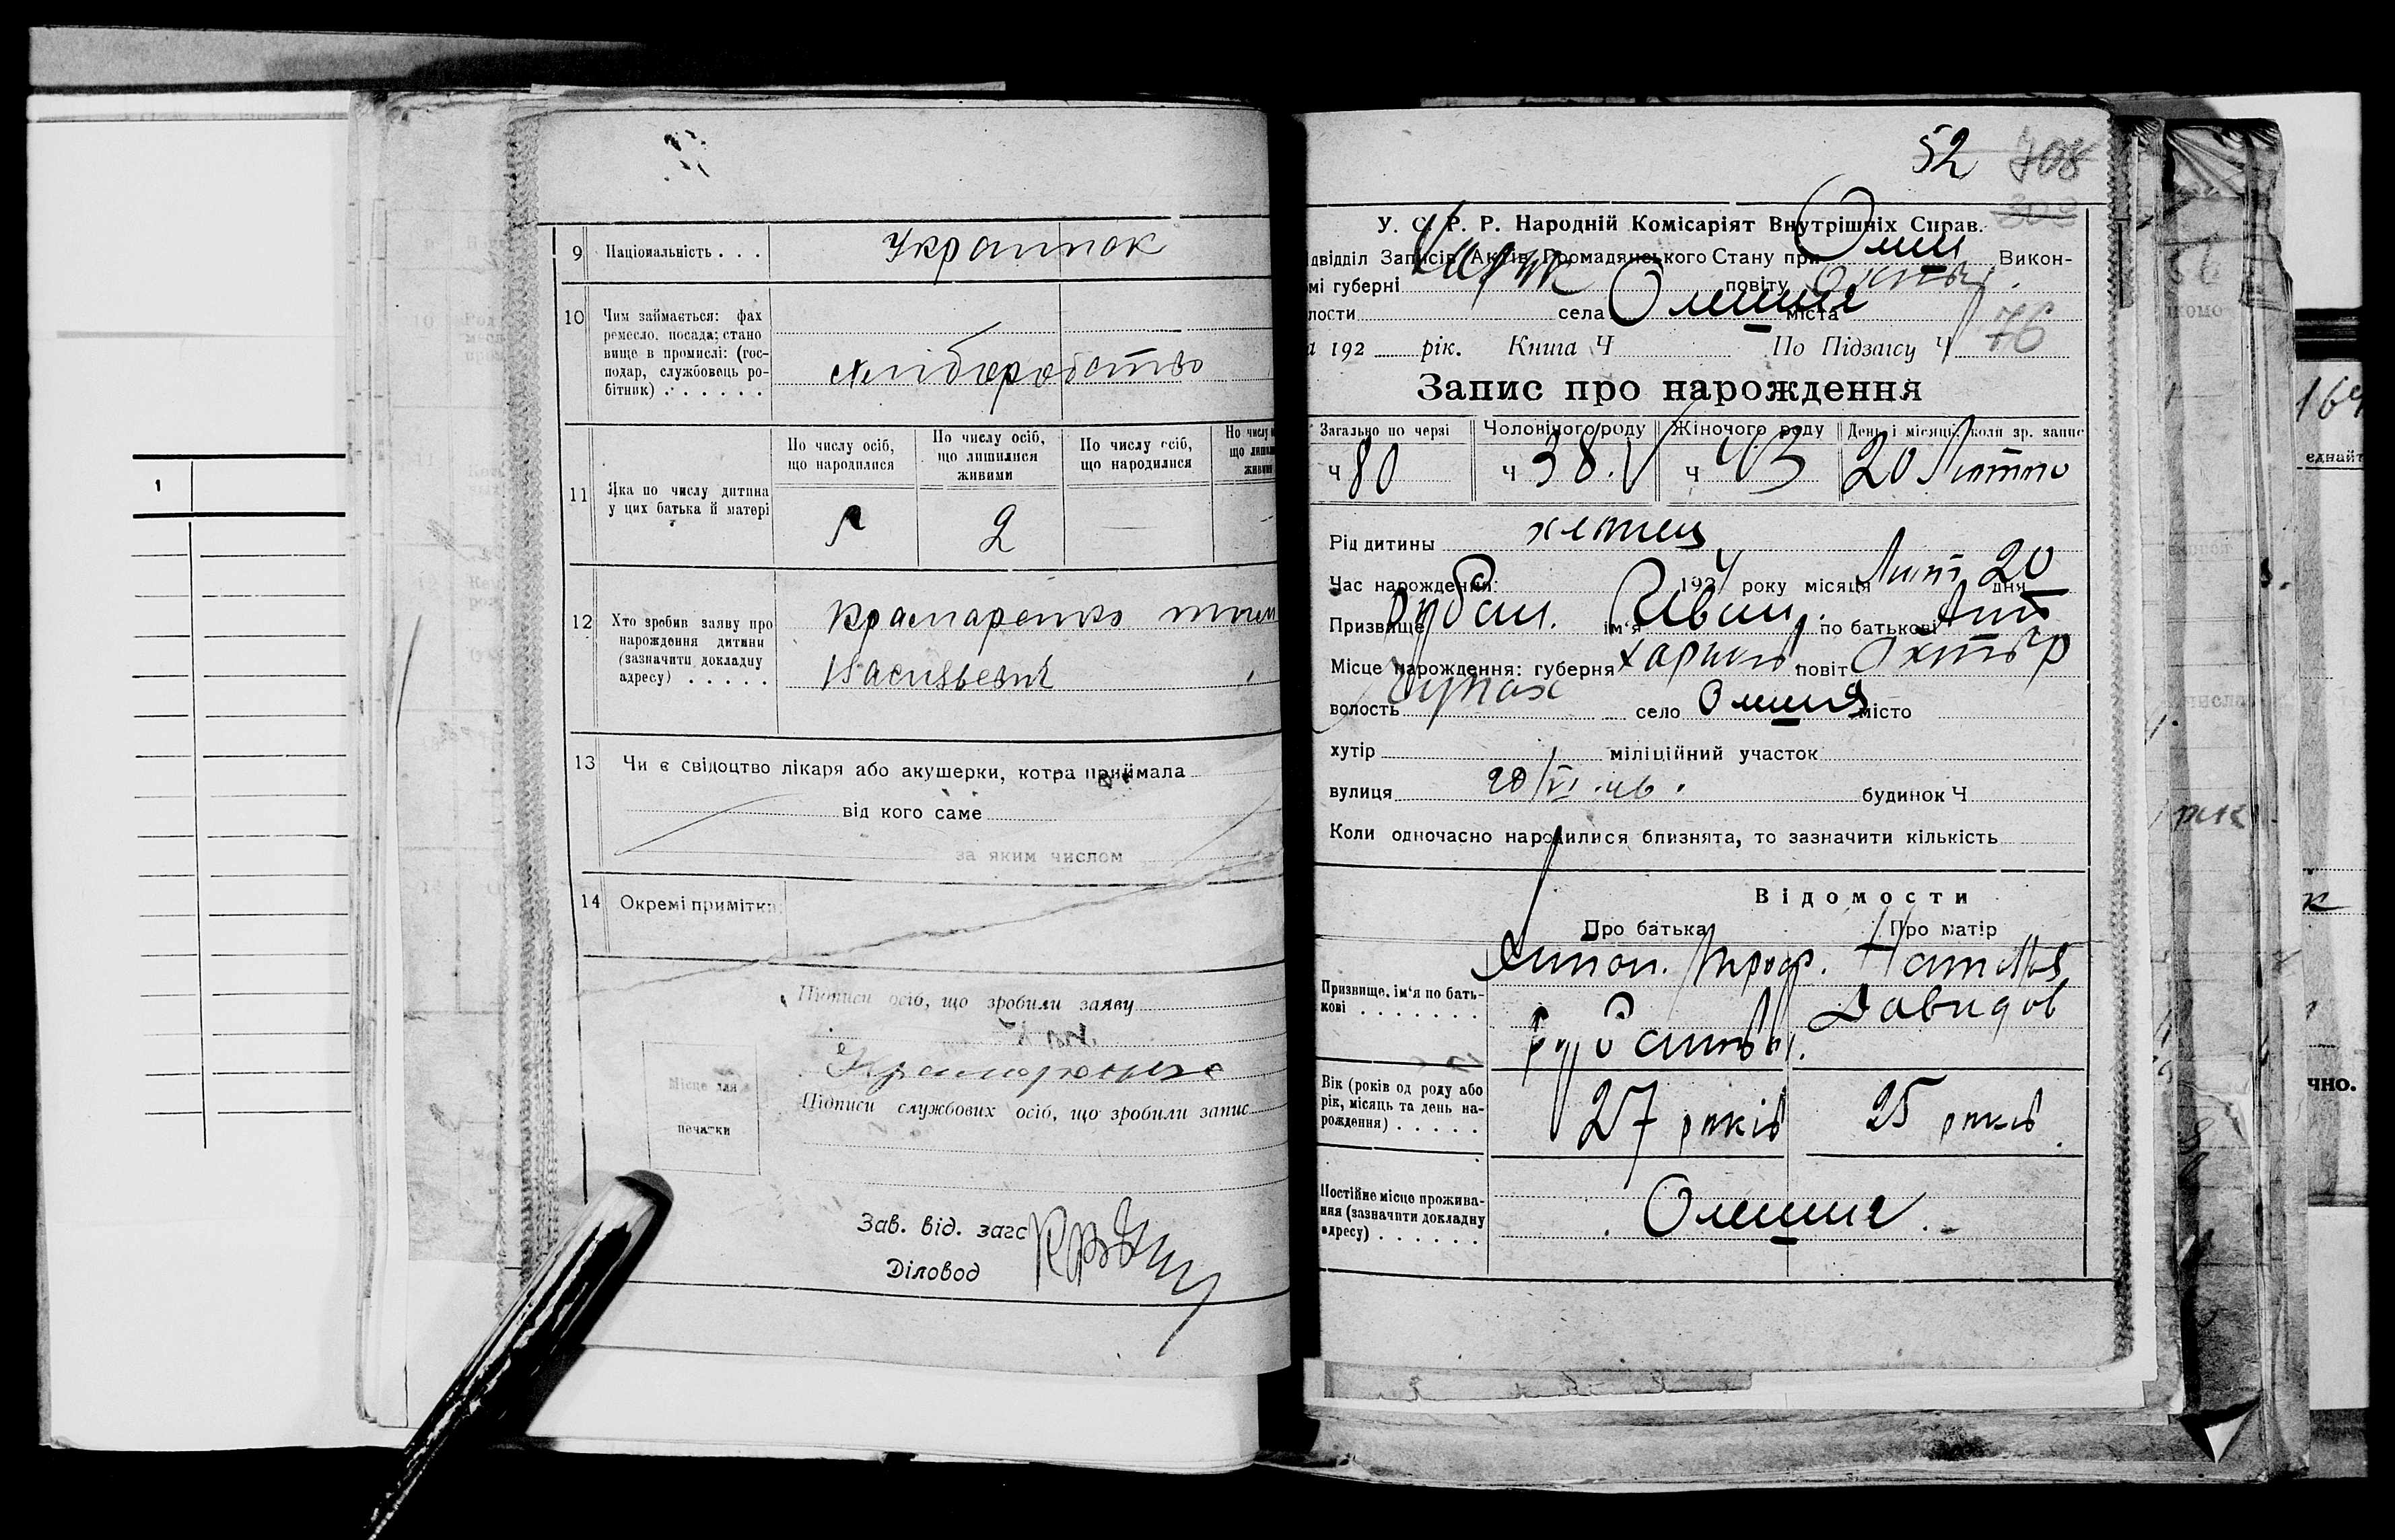 9 Національність . . . Украинск
10 Чим займається: фах
ремесло, посада; стано
вище в промислі: (гос-
подар, службовець ро-
бітник) . . . . . .
хліборобство
По числу осіб, що народилися
По числу осіб, що лишилися живими
По числу осіб, що народилися
11 Яка по числу дитина
у цих батька й матері
2
12 Хто зробив заяву про
нарождення дитини
(зазначити докладну
адресу) . . . . .
Крамаренко
Васильевич
13 Чи є свідоцтво лікаря або акушерки, котра приймала
від кого саме
за яким числом
14 Окремі примітки
Підписи осіб, що зробили заяву
Крамаренко
Місце для
печатки
Підписи службових осіб, що зробили запис
Зав. від. загс
Діловод
1
52 708
309
У. С. Р. Р. Народній Комісаріят Внутрішніх Справ.
двідділ Записів Актів Громадянського Стану при Викон-
мі губерні Харк повіту
лости села міста
а 192 рік. Книга Ч По Підзагсу Ч 76
Запис про нарождення
Загально по черзі Чоловічого роду Жіночого роду День і місяць, коли зр. запис
Ч 80 Ч 38. Ч 43 20 Лютого
Рід дитини хлопец
Час нарождення: 192 року місяця Лют 20 дня
Призвище Рубан. ім'я Иван. по батькові Ант
Місце нарождення: губерня Харьків повіт Охтыр
волость село Олешня місто
хутір міліційний участок
вулиця будинок Ч
Коли одночасно народилися близнята, то зазначити кількість
Відомости
Про батька Про матір
Призвище, ім'я по бать-
кові . . . . . . .
Антон. Троф. Наталія
Давидов
Вік (років од роду або
рік, місяць та день на-
рождення) . . . . .
27 років 25 років.
Постійне місце прожива-
ння (зазначити докладну
адресу) . . . . . .
Олешня.
164
еднайт
чно.